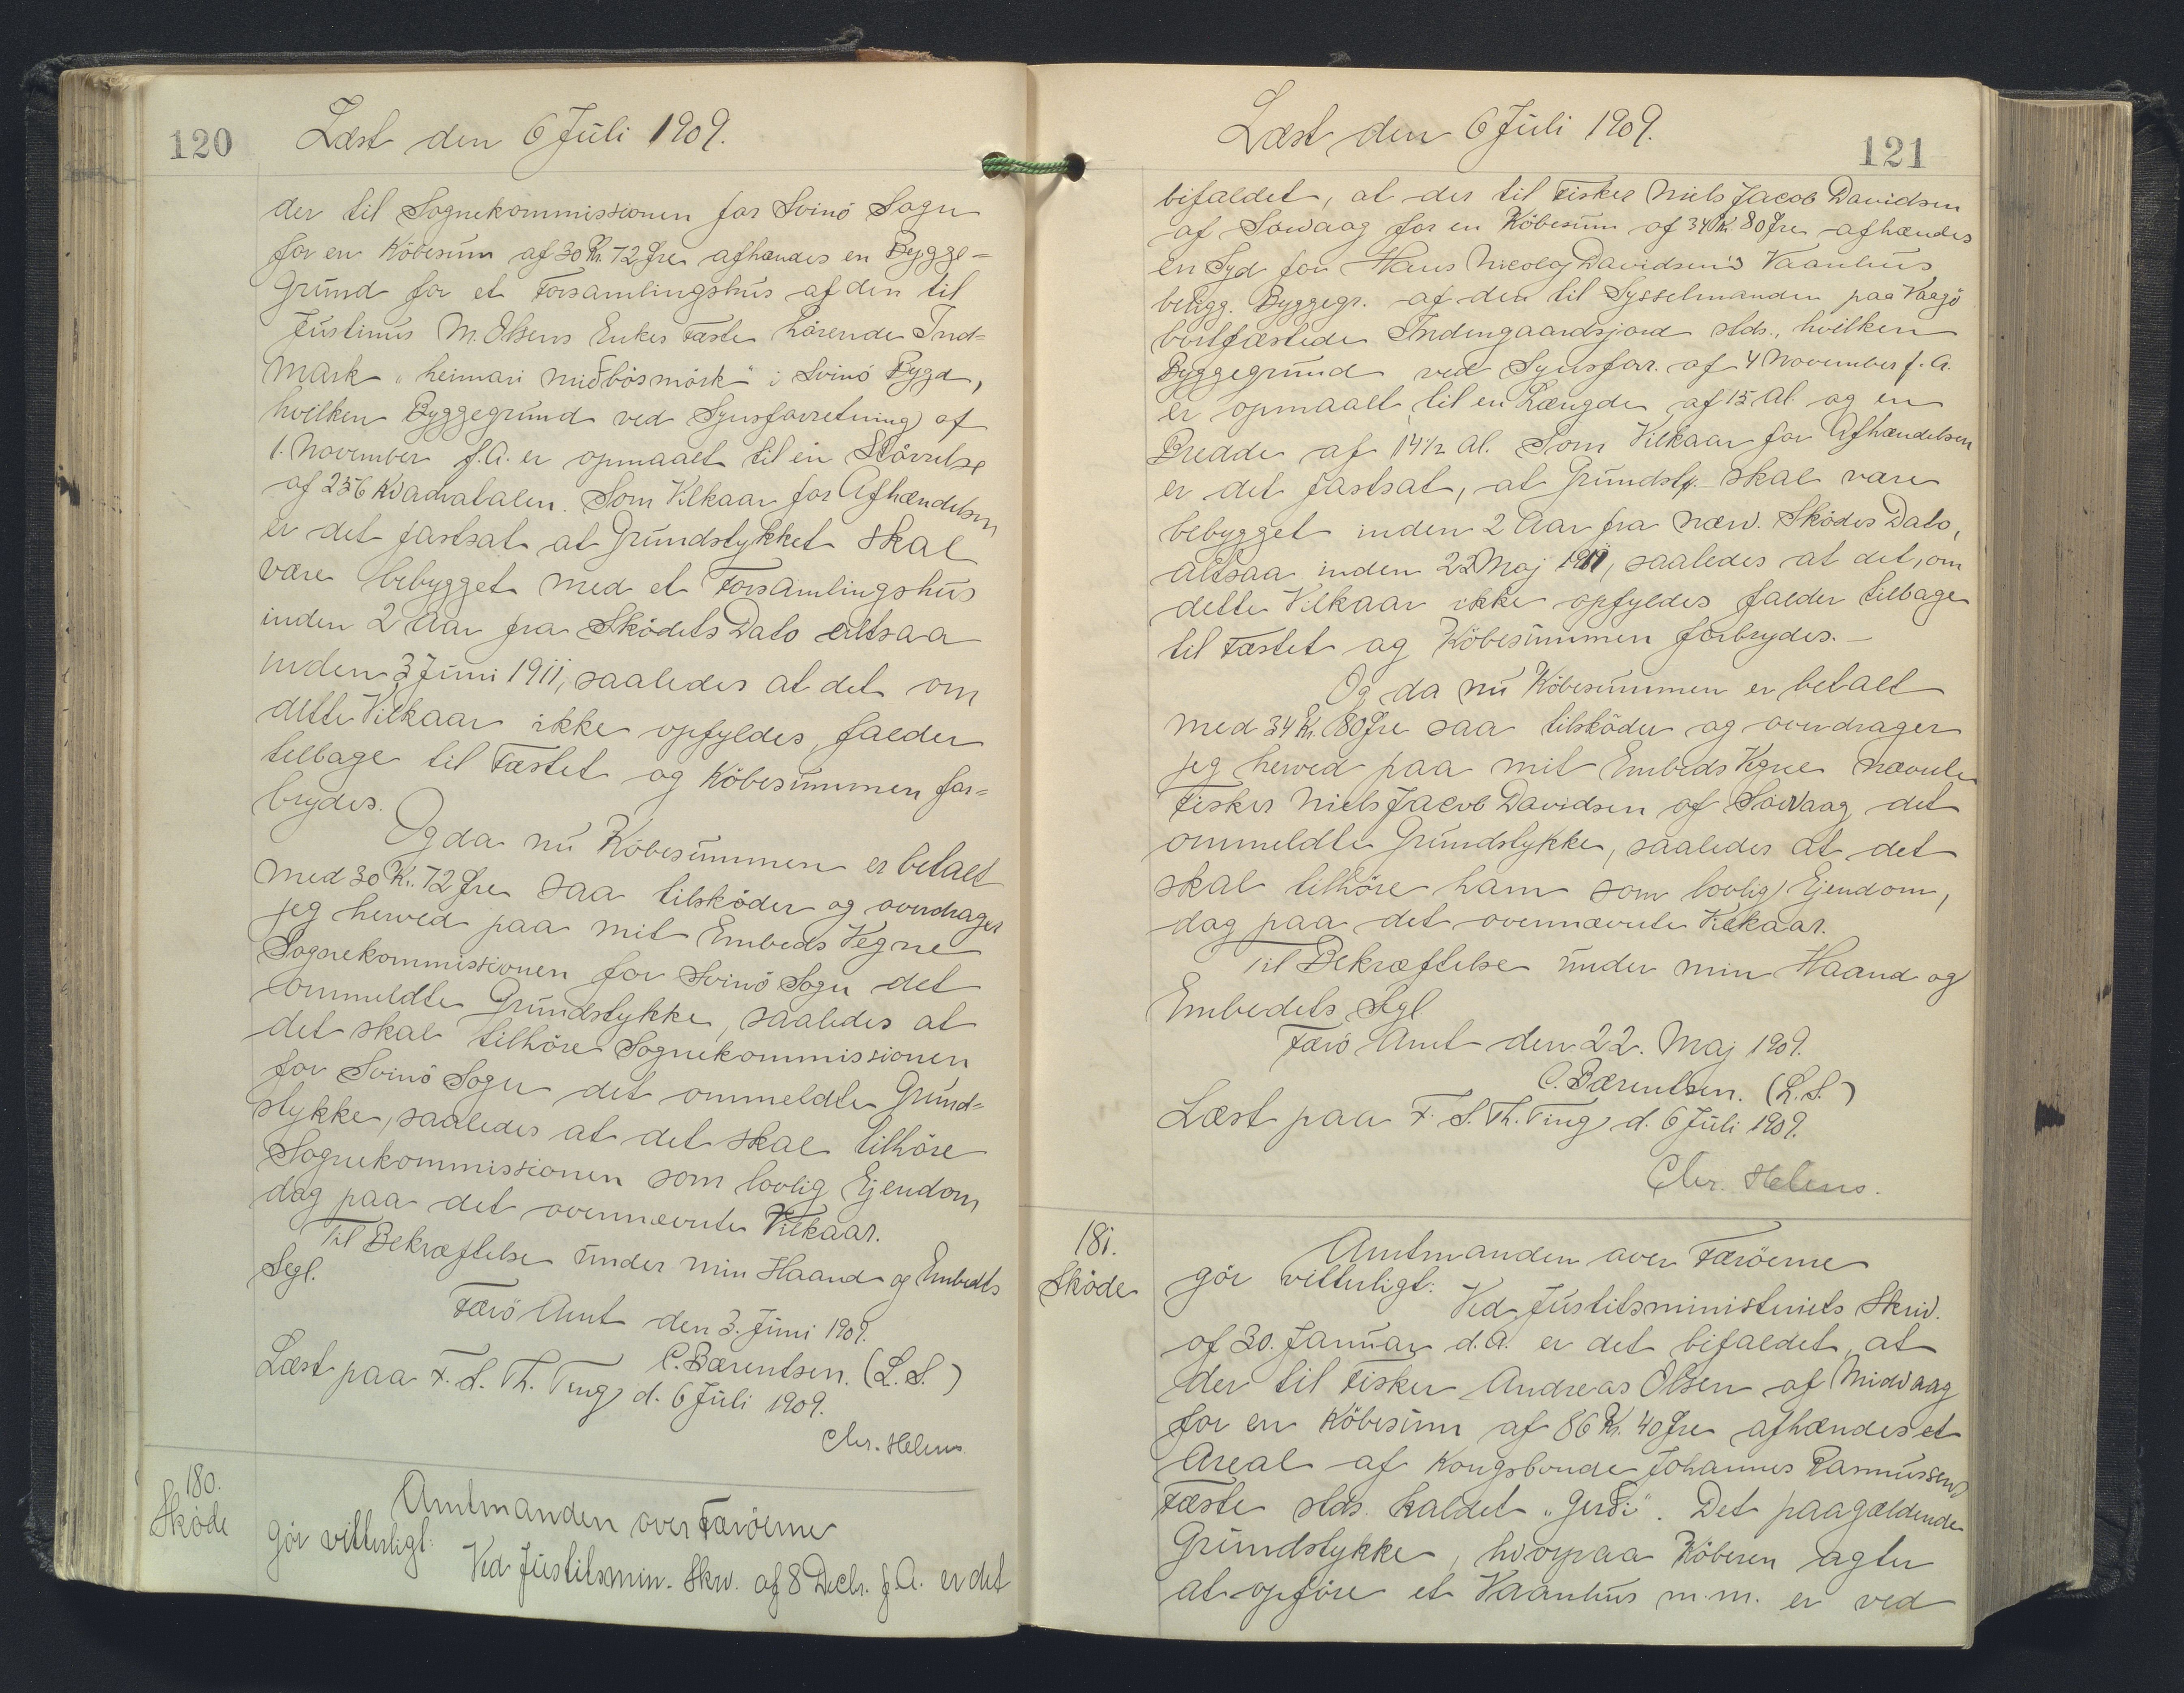 120
Læst den 6 Juli 1909.
der til Sognekommissionen for Svinö Sogn
for en Köbesum af 30 Kr. 72 Øre afhændes en Bygge=
Grund for et Forsamlingshus af den til
Justinus M. Olsens Enkes Fæste hörende Ind=
mark "heimari miðbösmörk" i Svinö Bygd,
hvilken Byggegrund ved Synsforretning af
1. November f.A. er opmaalt til en Störrelse
af 256 Kvadratalen. Som Vilkaar for Afhændelsen
er det fastsat at Grundstykket skal
være bebygget med et Forsamlingshus
inden 2 Aar fra Sködets Dato altsaa
inden 3 Juni 1911, saaledes at det om
dette Vilkaar ikke opfyldes, falder
tilbage til Fæstet og Köbesummen for=
brydes.
Og da nu Köbesummen er betalt
med 30 Kr. 72 Øre saa tilsköder og overdrager
jeg herved paa mit Embeds Vegne
Sognekommissionen for Svinö Sogn det
ommeldte Grundstykke, saaledes at
det skal tilhöre Sognekommissionen
for Svinö Sogn det ommeldte Grund=
stykke, saaledes at det skal tilhöre
Sognekommissionen som lovlig Ejendom
dog paa det ovennævnte Vilkaar.
Til Bekræftelse under min Haand og Embedts
Segl.
Færö Amt den 3. Juni 1909.
C. Bærentsen. (L. S.)
Læst paa F. S. Th. Ting d. 6 Juli 1909.
Chr. Helms
180.
Sköde
Amtmanden over Færöerne
gör vitterligt:
Ved Justitsmin. Skrv. af 8 Decbr. f.A. er det
121
Læst den 6 Juli 1909.
bifaldet, at der til Fisker Niels Jacob Davidsen
af Sörvaag for en Köbesum af 34 Kr. 80 Øre afhændes
en Syd for Hans Nicolaj Davidsen's Vaanhus
beligg. Byggegr. af den til Sysselmanden paa Vaagö
bortfæstede Indengaardsjord slds., hvilken
Byggegrund ved Synsforr. af 4 November f. A.
er opmaalt til en Længde af 15 Al. og en
Bredde af 14 1/2 Al. Som Vilkaar for Afhændelsen
er det fastsat, at Grundsty. skal være
bebygget inden 2 Aar fra nærv. Sködes Dato,
altsaa inden 22 Maj 1911, saaledes at det, om
dette Vilkaar ikke opfyldes falder tilbage
til Fæstet og Köbesummen forbrydes.-
Og da nu Köbesummen er betalt
med 34 Kr. 80 Øre saa tilsköder og overdrager
jeg herved paa mit Embeds Vegne nævnte
Fisker Niels Jacob Davidsen af Sörvaag det
ommeldte Grundstykke, saaledes at det
skal tilhöre ham som lovlig Ejendom,
dog paa det ovennævnte Vilkaar.
Til Bekræftelse under min Haand og
Embedets Segl
Færö Amt den 22. Maj 1909.
C. Bærentsen. (L.S.)
Læst paa F. S. Th. Ting d. 6 Juli 1909.
Chr. Helms.
181.
Sköde
Amtmanden over Færöerne
gör vitterligt:
Ved Justitsministeriets Skriv.
af 30. Januar d.A. er det bifaldet, at
der til Fisker Andreas Olsen af Midvaag
for en Köbesum af 86 Kr. 40 Øre afhændes et
Areal af Kongsbonde Johannes Rasmussens
Fæste slds. kaldet "Gerði". Det paagældende
Grundstykke, hvorpaa Köberen agter
at opföre et Vaanhus m.m. er ved